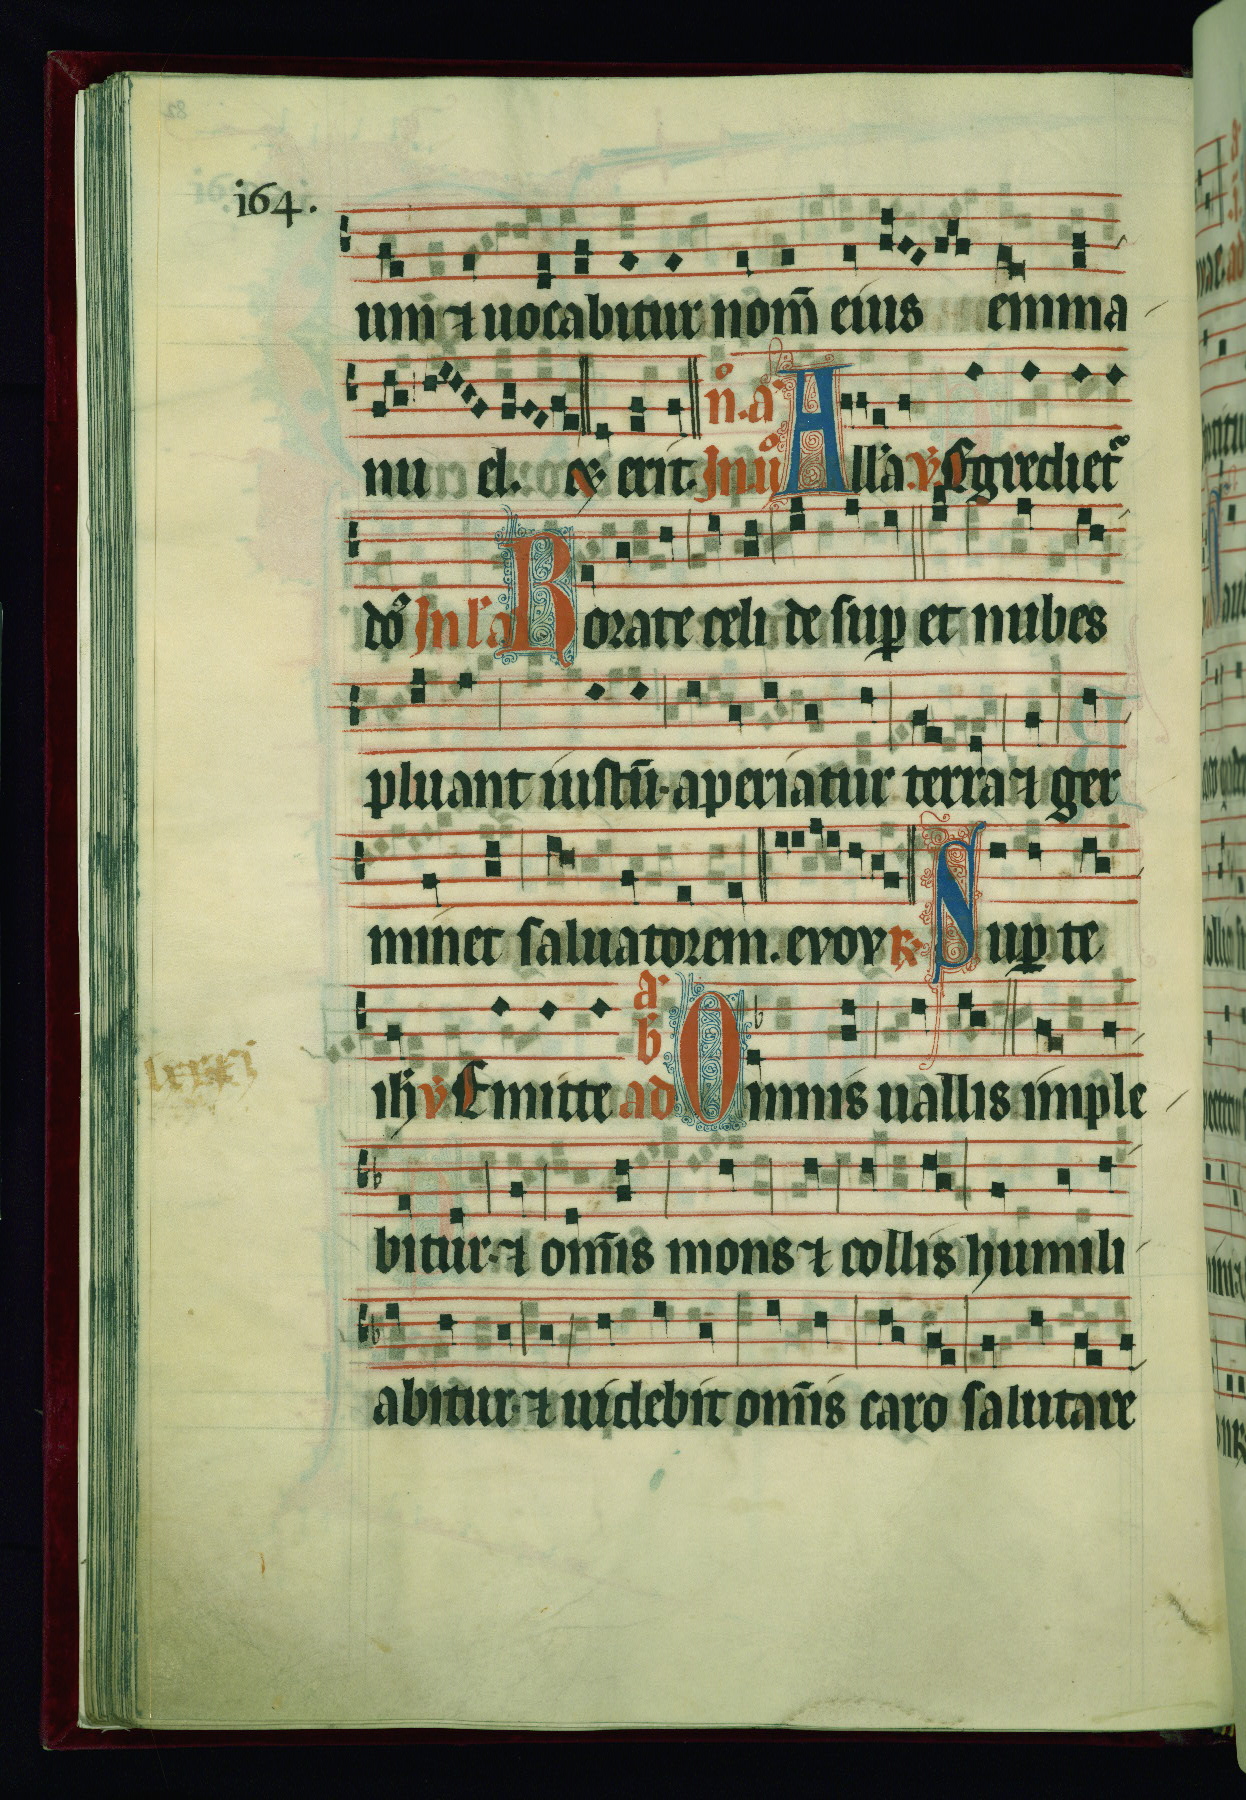 i64.
um̄ ⁊ uocabitur nom̄ eius emma
nu el. erit. Inuͦ Alla. ℣ Egredietᷣ
n̄. a
do᷒ In l'a Rorate celi de suꝑ et nubes
pluant iustū. aperiatur terra ⁊ ger
minet saluatorem. evovR. Suꝑ te
a.
ih̄ v Emitte ad Omnis uallis imple
b
bitur. ⁊ om̄is mons ⁊ collis humili
abitur. ⁊ uidebit om̄is caro salutare